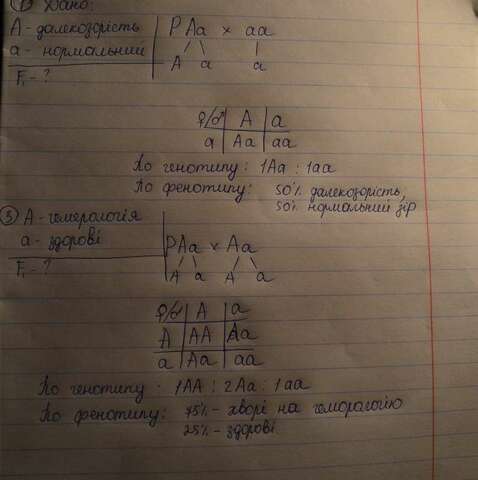 ① Дано:
A - далекозорість
a - нормальний
F₁ - ?
P Aa × aa
A a a
♀/♂ A a
a Aa aa
По генотипу: 1Aa : 1aa
По фенотипу: 50% далекозорість,
50% нормальний зір
③ A - гемералогія
a - здорові
F₁ - ?
P Aa × Aa
A a A a
♀/♂ A a
A AA Aa
a Aa aa
По генотипу - 1AA : 2Aa : 1aa
По фенотипу: 75% - хворі на гемералогію
25% - здорові